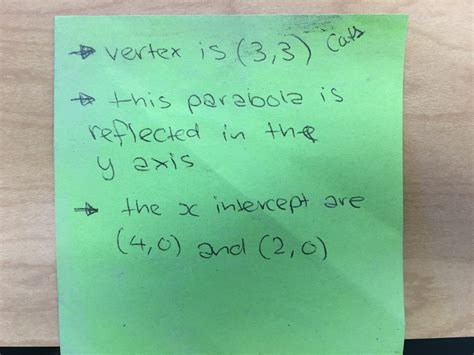 → vertex is (3,3) Cats
→ this parabola is
reflected in the
y axis
→ the x intercept are
(4,0) and (2,0)